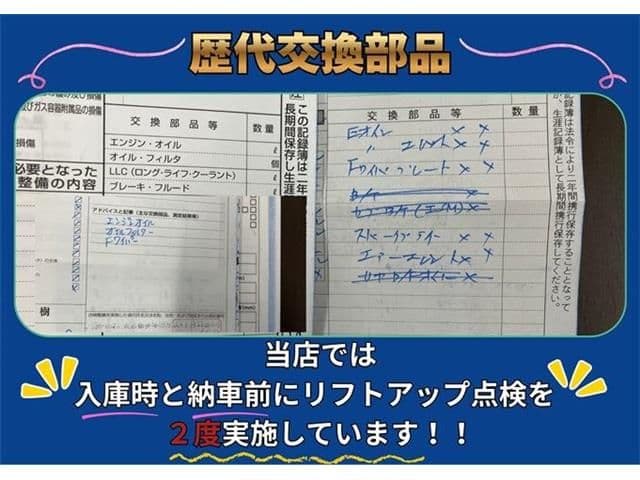 歴代交換部品
及びガス容器附属品の損傷
損傷
必要となった
整備の内容
交換部品等 数量
エンジン・オイル ℓ
オイル・フィルタ 個
LLC（ロング・ライフ・クーラント）
ブレーキ・フルード
この記録簿は二年
長期間保存し生涯
アドバイスと記事（主な交換部品、測定結果等）
エンジンオイル
オイルフィルター
Fワイパー
樹
交換部品等 数量
Eオイル × ×
〃 エレメント × ×
Fワイパープレート × ×
エアーエレメント × ×
記録簿は法令により二年間携行保存することとなって
が、生涯記録簿として長期間携行保存してください。
当店では
入庫時と納車前にリフトアップ点検を
２度実施しています！！